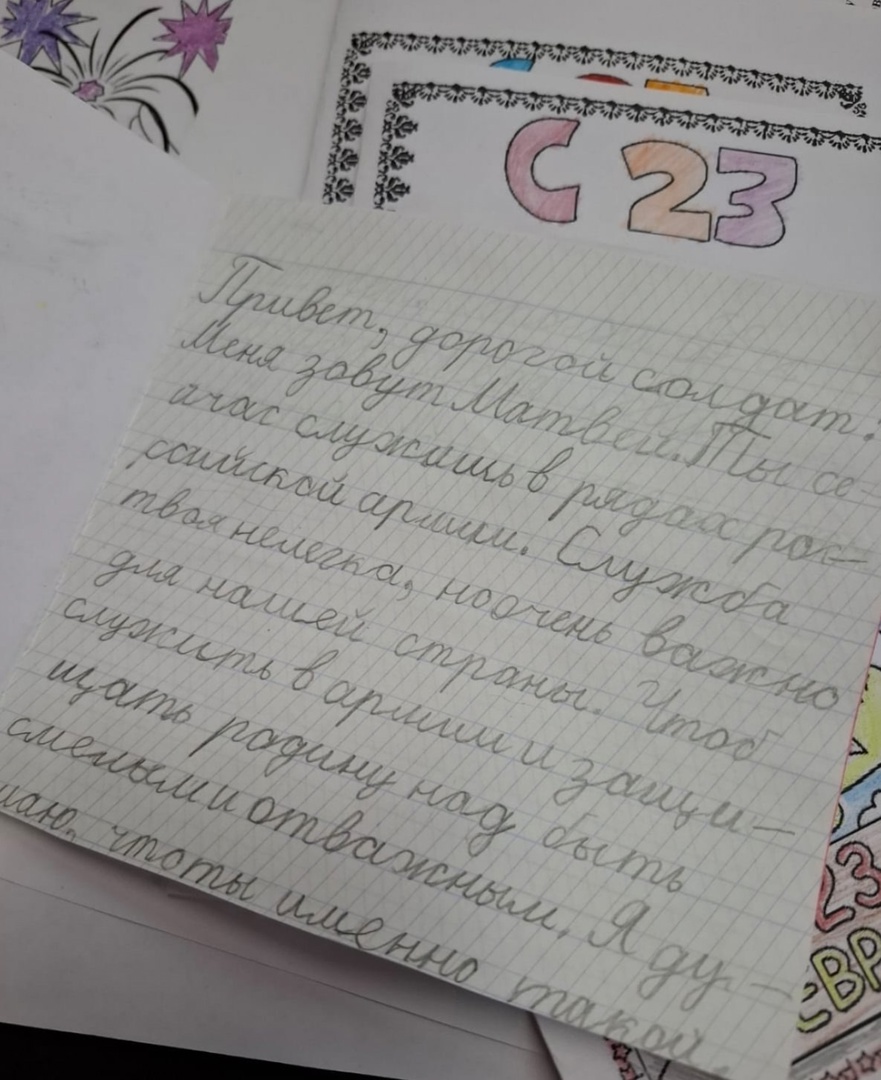 С 23
Привет, дорогой солдат.
Меня зовут Матвей. Ты се-
ачас служишь в рядах рос-
сийской армии. Служба
твоя нелегка, но очень важно
для нашей страны. Чтоб
служить в армии и защи-
щать родину над быть
смелым и отважным. Я ду-
маю, что ты именно такой
23
ЕВР